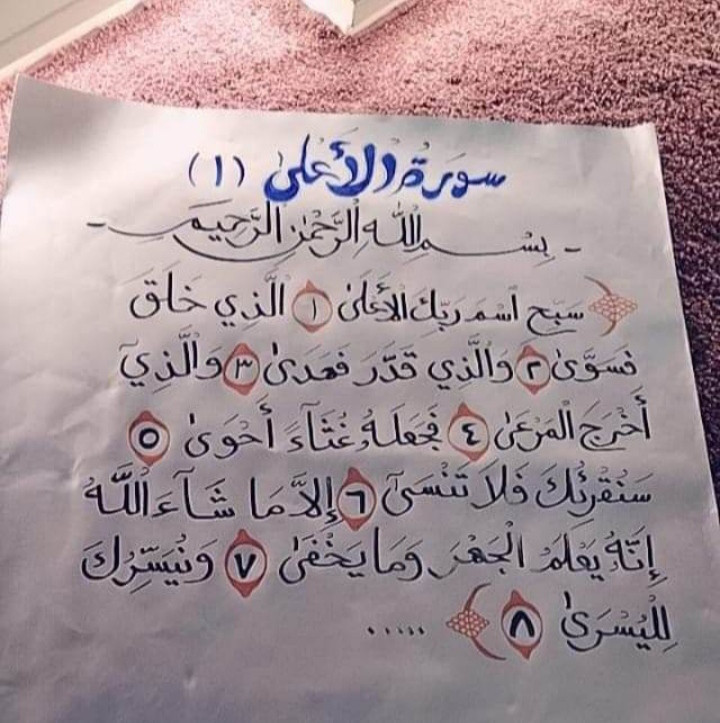 سورة الأعلى (١)
- بِسْمِ اللَّهِ الرَّحْمَٰنِ الرَّحِيمِ -
﴿ سَبِّحِ اسْمَ رَبِّكَ الأَعْلَىٰ ١ الَّذِي خَلَقَ
فَسَوَّىٰ ٢ وَالَّذِي قَدَّرَ فَهَدَىٰ ٣ وَالَّذِيٓ
أَخْرَجَ الْمَرْعَىٰ ٤ فَجَعَلَهُ غُثَآءً أَحْوَىٰ ٥
سَنُقْرِئُكَ فَلاَ تَنْسَىٰٓ ٦ إِلاَّ مَا شَآءَ اللَّهُ
إِنَّهُ يَعْلَمُ الْجَهْرَ وَمَا يَخْفَىٰ ٧ وَنُيَسِّرُكَ
لِلْيُسْرَىٰ ٨ ﴾ .....